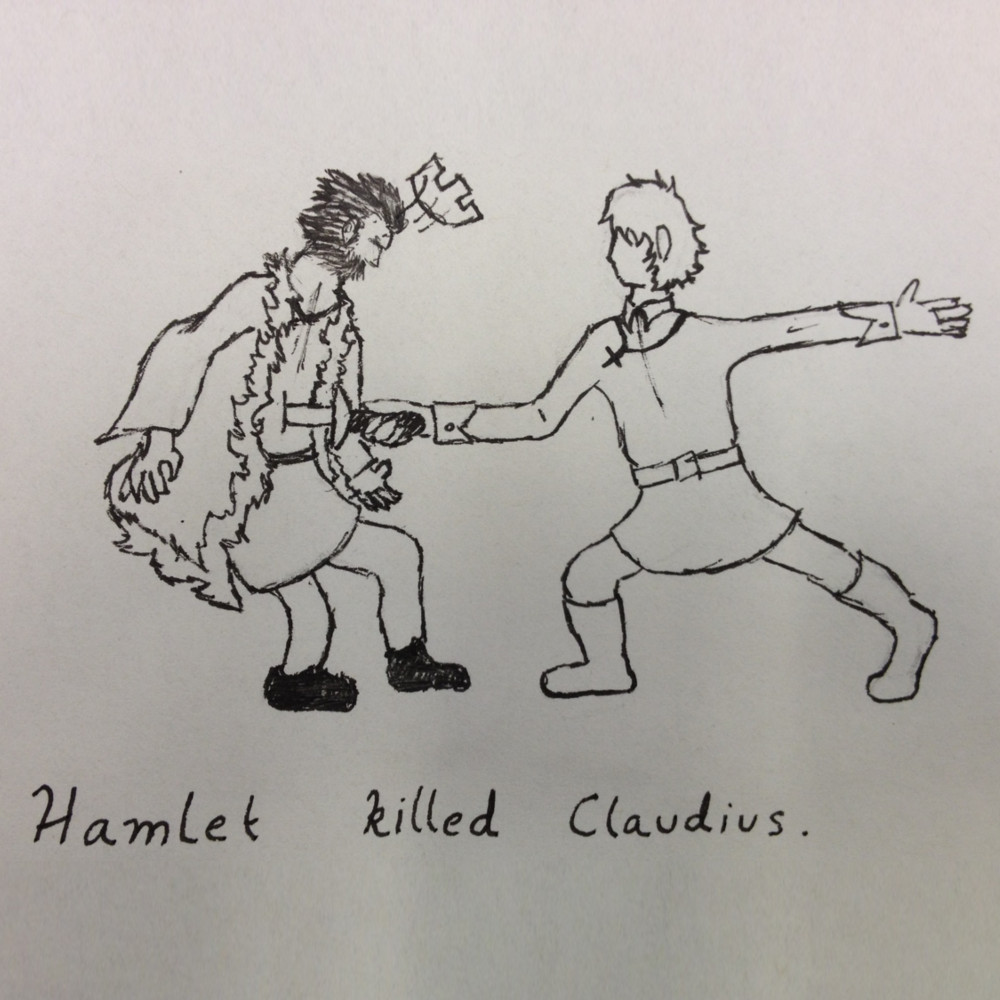 Hamlet killed Claudius.